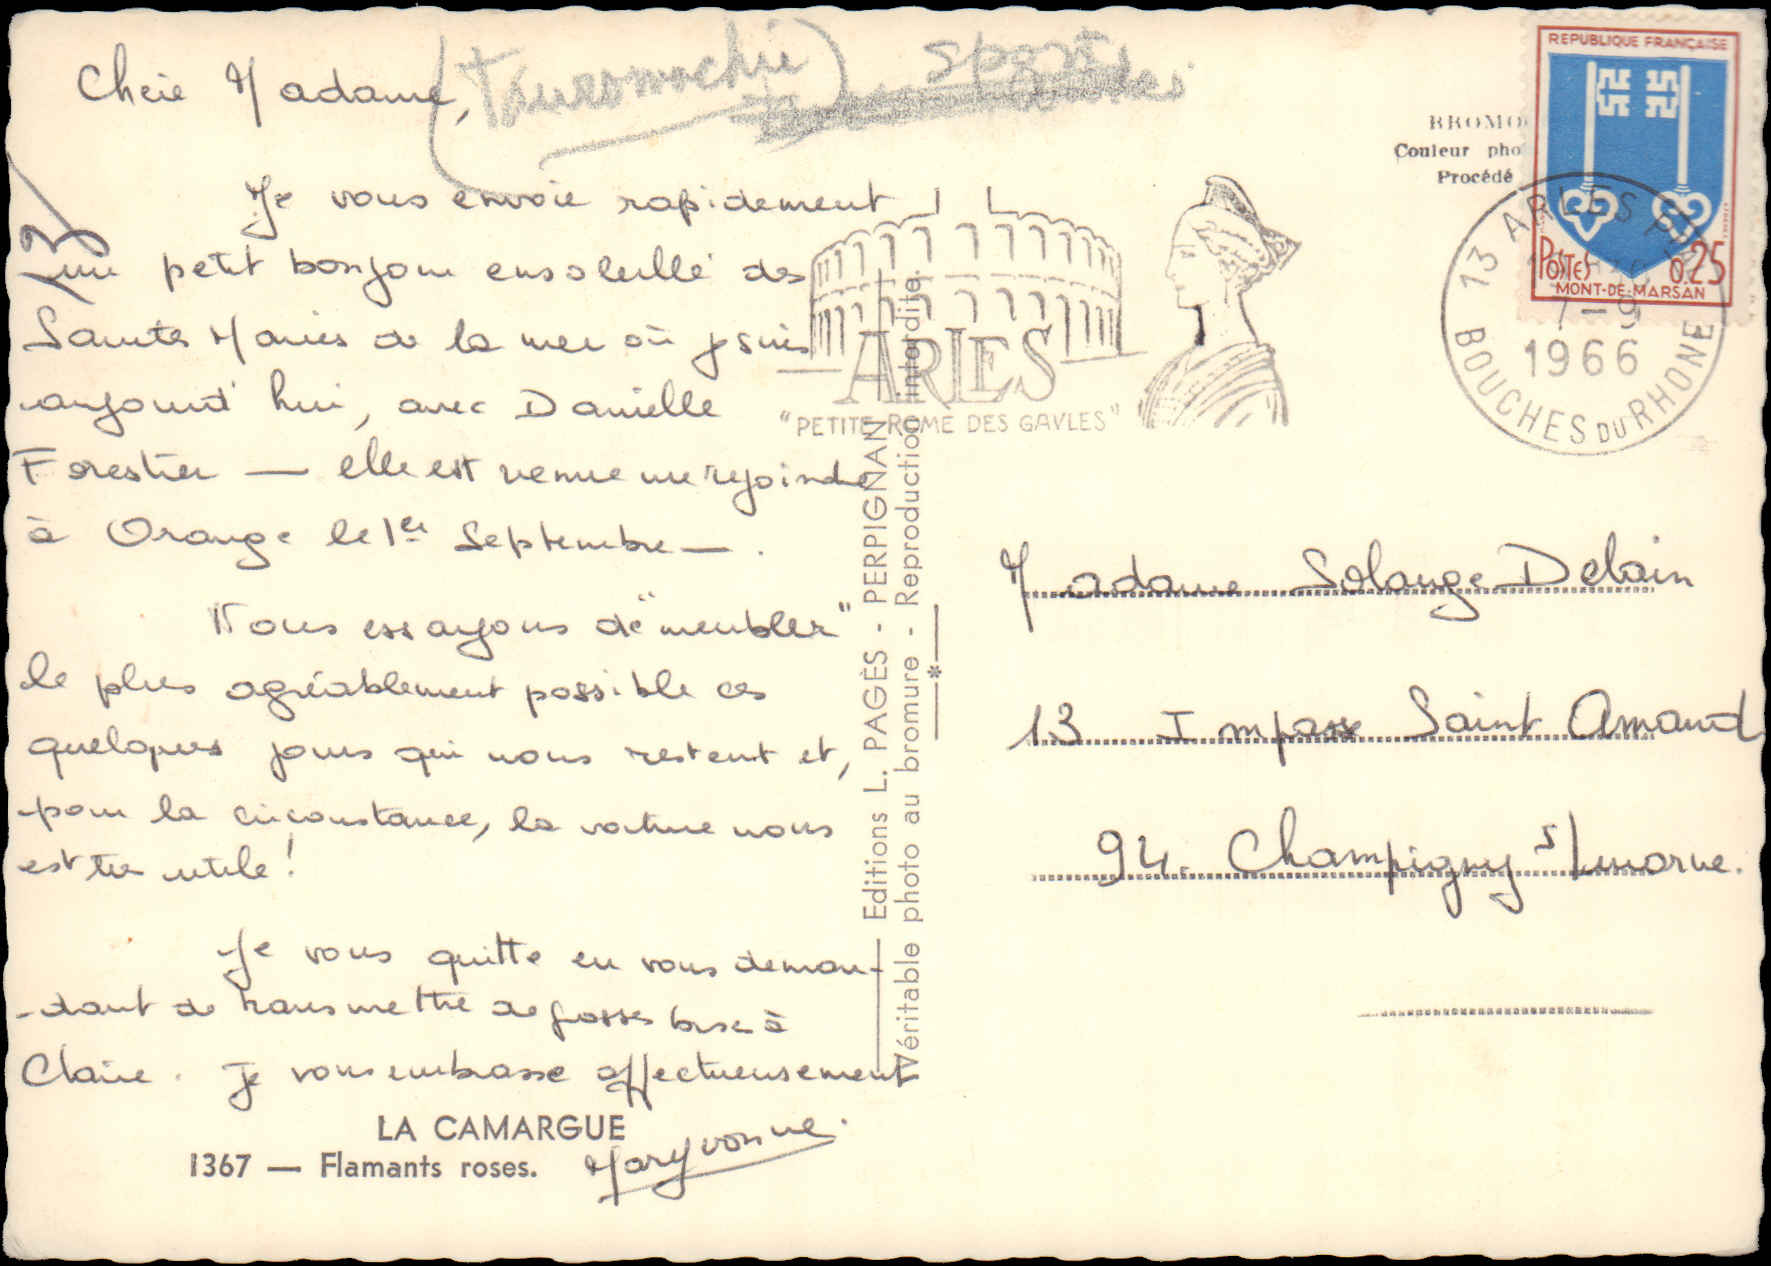 Chère Madame,
(Tauromachie) sports
Je vous envoie rapidement
un petit bonjour ensoleillé des
Saintes Maries de la mer où j'suis
aujourd'hui, avec Danielle
Forestier — elle est venue me rejoindre
à Orange le 1er Septembre — .
Nous essayons de "meubler"
le plus agréablement possible ces
quelques jours qui nous restent et,
pour la circonstance, la voiture nous
est très utile !
Je vous quitte en vous deman-
-dant de transmettre de grosses bises à
Claire. Je vous embrasse affectueusement
Maryvonne.
LA CAMARGUE
1367 — Flamants roses.
Editions L. PAGÈS - PERPIGNAN
Véritable photo au bromure - Reproduction interdite.
ARLES
"PETITE ROME DES GAVLES"
Couleur
Procédé
REPUBLIQUE FRANÇAISE
POSTES 0.25
MONT-DE-MARSAN
13 ARLES
7-9
1966
BOUCHES DU RHONE
Madame Solange Delain
13 Impasse Saint Amand
94. Champigny s/marne.